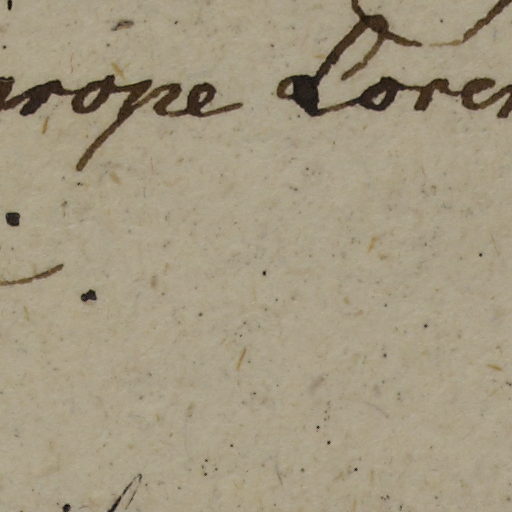 urope Loren